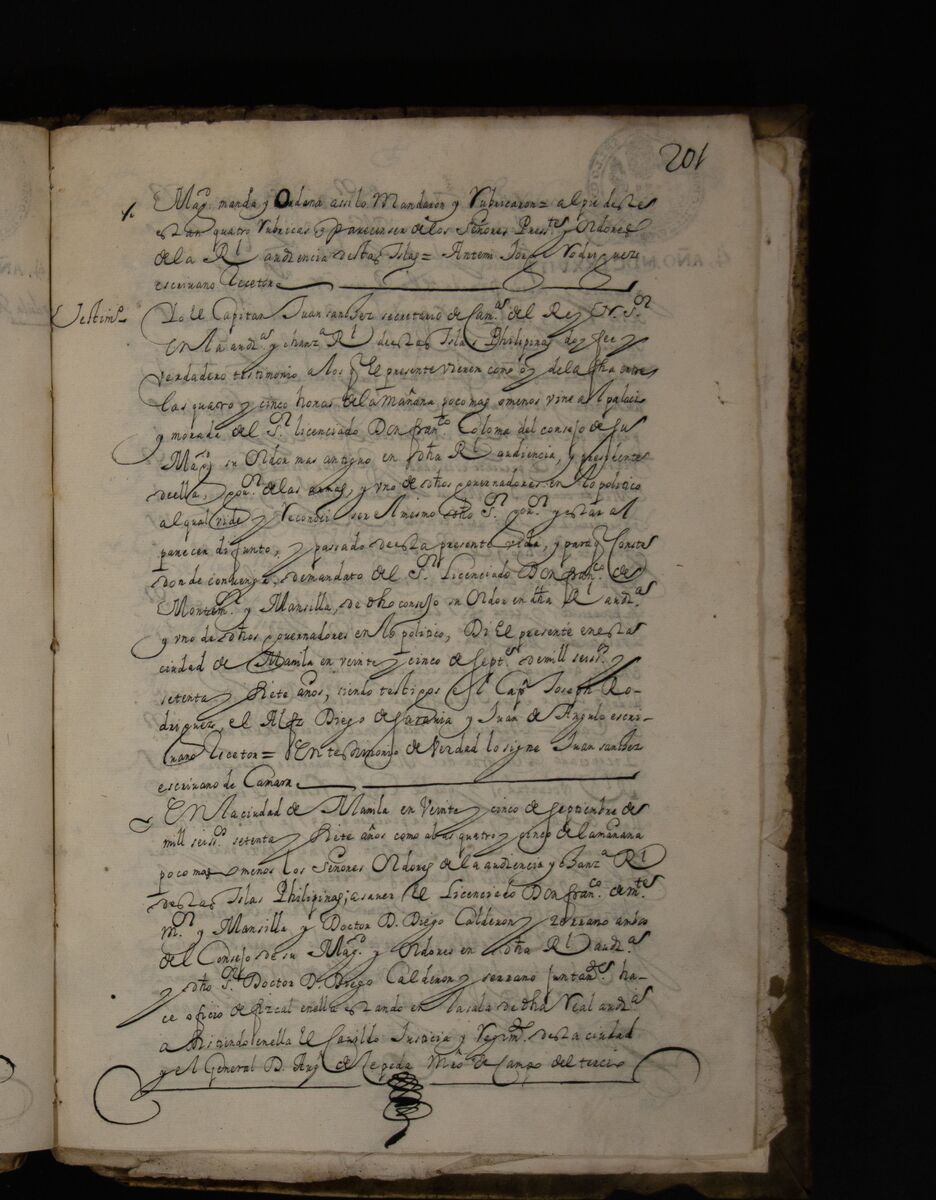 201
Mag.d manda y Ordena assi lo Mandaron y Rubricaron = al pie destos
estan quatro rubricas q parecen ser de los Señores Press.tes y Oidores
de la R.l audiencia destas Islas = Antemi Jorge Rodriguez
escriuano Recetor
Testim.o
Yo el Capitan Juan sanchez secretario de Cam.a del Rey N. S.or
En la aud.a y chanz.a R.l de estas Islas Philipinas doy fee y
verdadero testimonio a los q El presente vieren como oy dela fha entre
las quatro y cinco horas de la Mañana poco mas omenos vine al palacio
y morada del S.or licenciado Don fran.co Coloma del consejo de su
Mag.d su Oidor mas antiguo en dha R.l audiencia, y presidente
de ella, gou.or de las armas, y vno de dhos gouernadores en lo politico
al qual vide y Reconoci ser el mismo dho S.or gou.or y estar al
parecer difunto, y passado de esta presente vida, y para q Conste
donde conuenga, de mandato del S.or Licenciado Don fran.co de
Montem.or y Mansilla, de dho consejo su Oidor en dha R.l aud.a
y vno de dhos gouernadores en lo politico, Di El presente en esta
ciudad de Manila en veinte y cinco de Sept.re de mill seis.os y
setenta y Siete años, siendo testigos el Cap.n Joseph Ro-
driguez, el Alfz Diego de Saravia y Juan de Angulo escri-
uano Recetor = En testimonio de Verdad lo signe Juan sanchez
escriuano de Camara
En la ciudad de Manila en Veinte y cinco de septiembre de
mill seis.os setenta y Siete años como a las quatro y cinco de la mañana
poco mas omenos los Señores Oidores de la audiencia y chanz.a R.l
de estas Islas Philipinas; asauer el Licenciado Don fran.co de m.te
m.or y Mansilla y Doctor D. Diego Calderon y serrano ambos
del Consejo de su Mag.d y Oidores en dha R.l aud.a
y dho S.or Doctor D. Diego Calderon y serrano juntam.te ha-
ce oficio de fiscal en ella estando en la sala de dha Real aud.a
asistiendo en ella el Cauildo Justicia y Regim.to desta ciudad
y el General D. Aug.n de Cepeda Mro de Campo del tercio